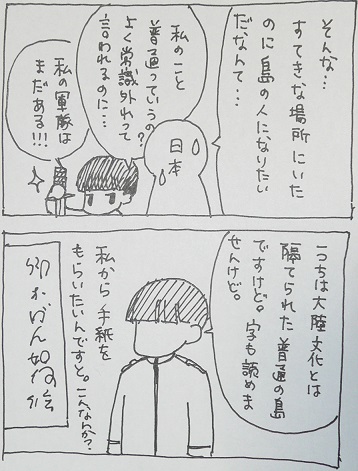 そんな…
すてきな場所にいた
のに島の人になりたい
だなんて…
日本
私のこと
普通っていうの？
よく常識外れって
言われるのに…
私の軍隊は
まだある!!!
こっちは大陸文化とは
隔てられた普通の島
ですけど。字も読めま
せんけど。
私から手紙を
もらいたいんですと。こんなんか？